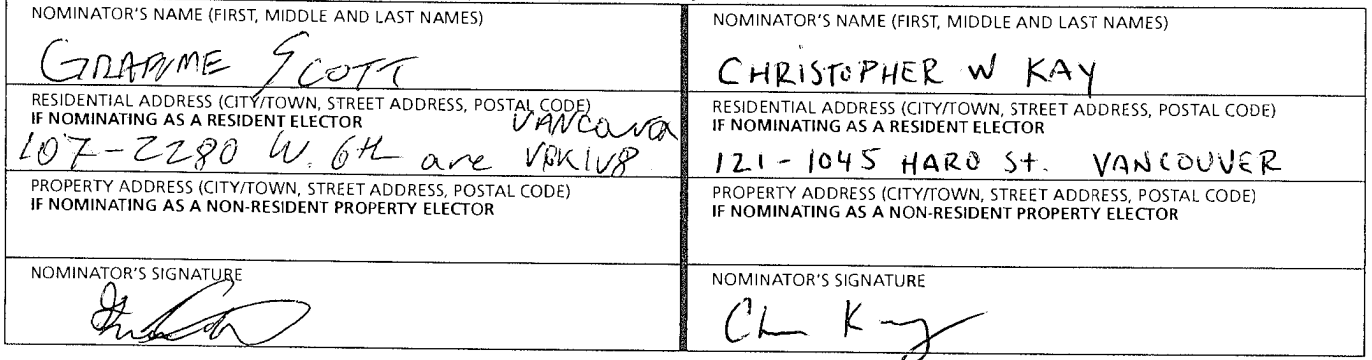 NOMINATOR'S NAME (FIRST, MIDDLE AND LAST NAMES)
GRAEME SCOTT
RESIDENTIAL ADDRESS (CITY/TOWN, STREET ADDRESS, POSTAL CODE)
IF NOMINATING AS A RESIDENT ELECTOR
VANCOUVER
107-2280 W. 6th ave V6K1V8
PROPERTY ADDRESS (CITY/TOWN, STREET ADDRESS, POSTAL CODE)
IF NOMINATING AS A NON-RESIDENT PROPERTY ELECTOR
NOMINATOR'S SIGNATURE
NOMINATOR'S NAME (FIRST, MIDDLE AND LAST NAMES)
CHRISTOPHER W KAY
RESIDENTIAL ADDRESS (CITY/TOWN, STREET ADDRESS, POSTAL CODE)
IF NOMINATING AS A RESIDENT ELECTOR
121-1045 HARO St. VANCOUVER
PROPERTY ADDRESS (CITY/TOWN, STREET ADDRESS, POSTAL CODE)
IF NOMINATING AS A NON-RESIDENT PROPERTY ELECTOR
NOMINATOR'S SIGNATURE